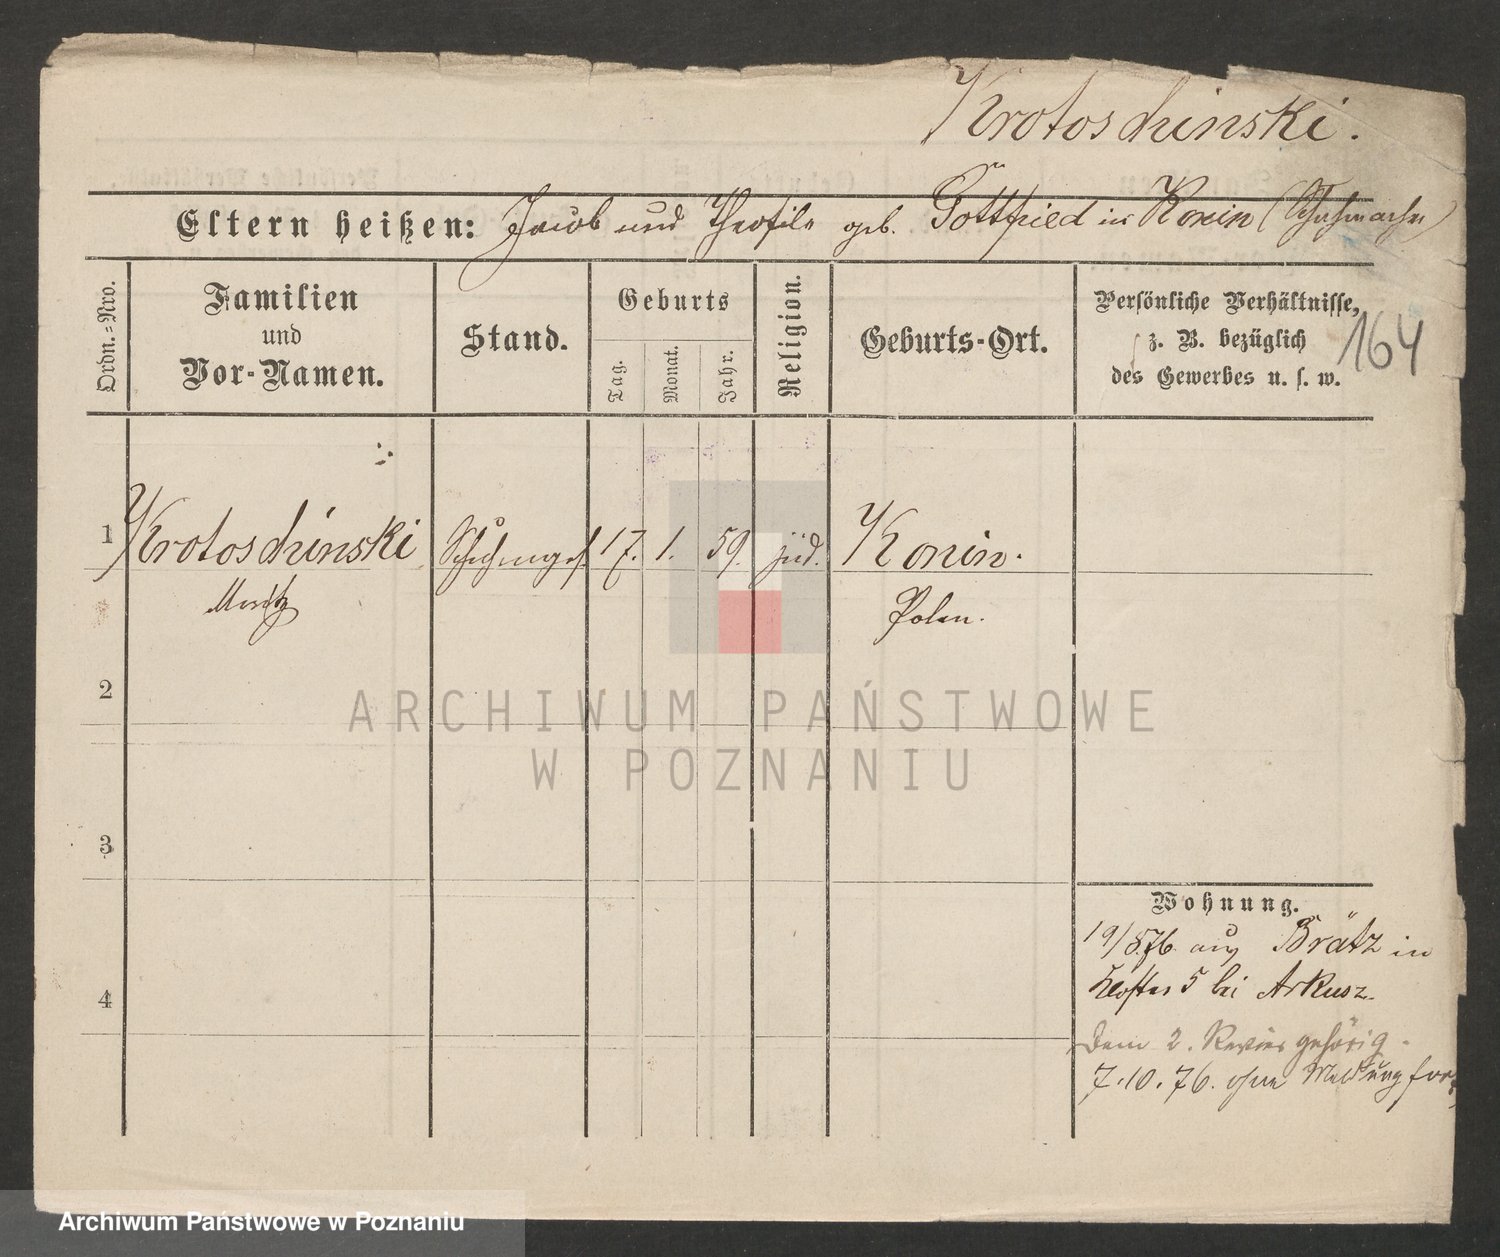 Krotoschinski.
Eltern heißen: Jacob und Theofile geb. Göttfried in Konin (Schuhmacher)
Ordn.=Nro.
Familien
und
Vor-Namen.
Stand.
Geburts
Tag.
Monat.
Jahr.
Religion.
Geburts-Ort.
Persönliche Verhältnisse,
z. B. bezüglich
des Gewerbes u. s. w.
164
1 Krotoschinski Schuhmges. 17. 1. 59. jüd. Konin.
Moritz Polen.
2
ARCHIWUM PAŃSTWOWE
W POZNANIU
3
Wohnung.
19/8.76. aus Brätz in
Kloster 5 bei Arkusz.
4
Dem 2. Revier gehörig.
7.10.76. ohne Meldung fort
Archiwum Państwowe w Poznaniu